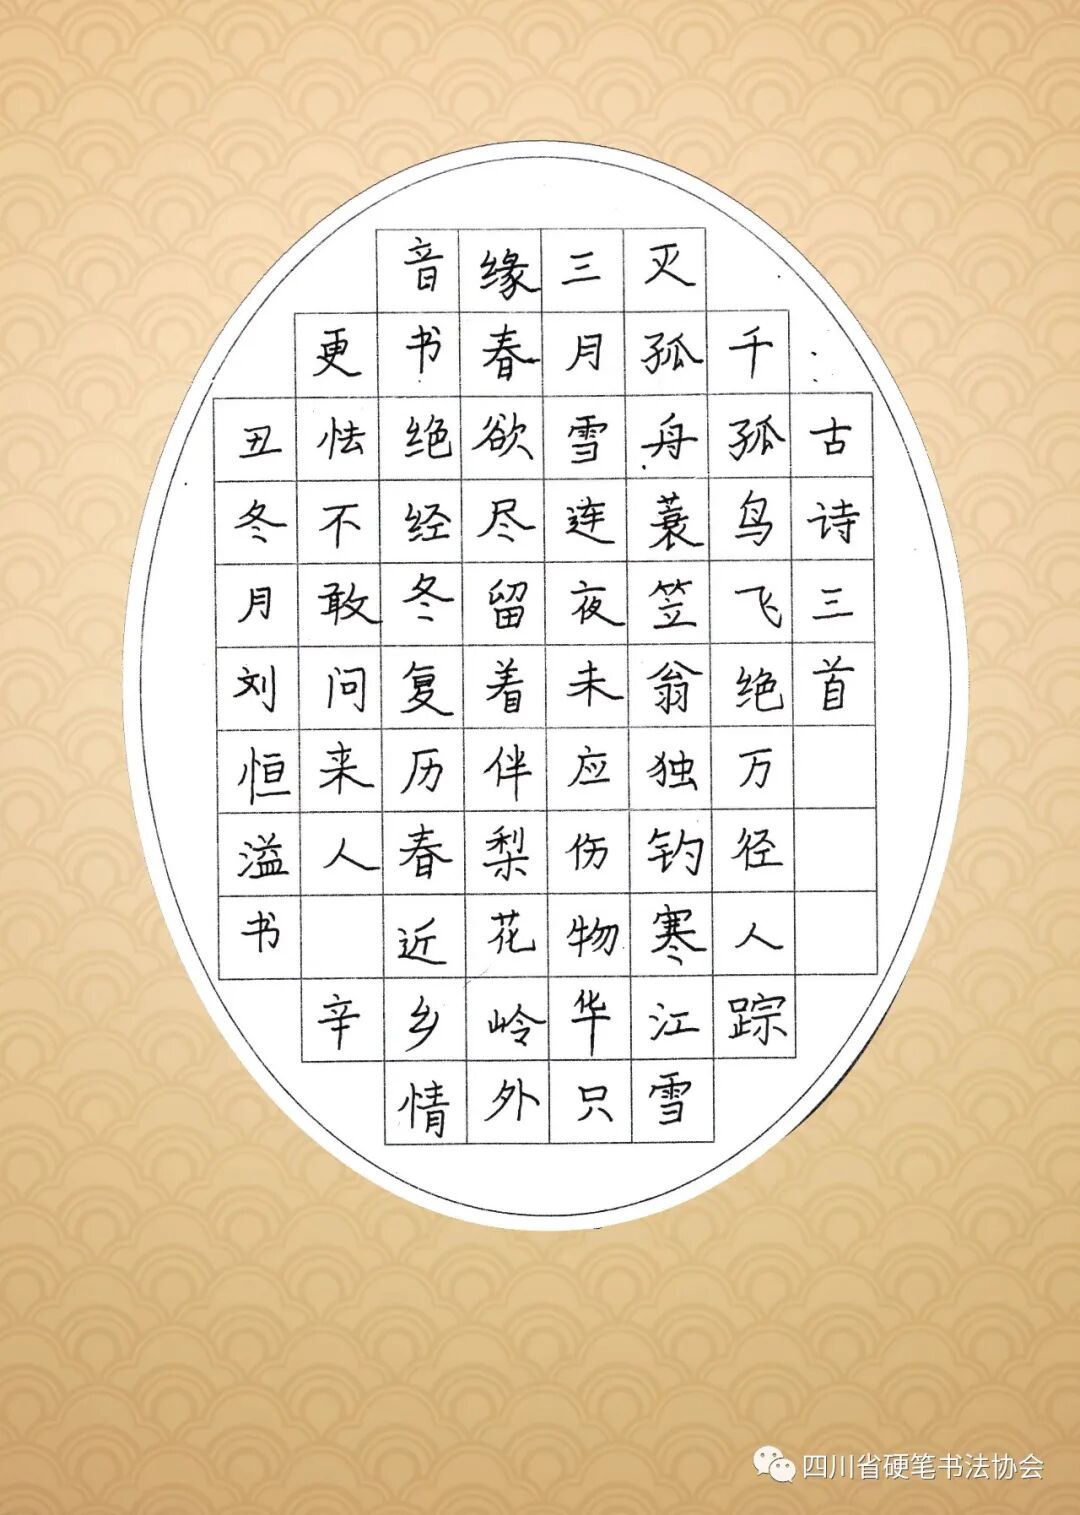 古诗三首
千孤鸟飞绝万径人踪
灭孤舟蓑笠翁独钓寒江雪
三月雪连夜未应伤物华只
缘春欲尽留着伴梨花岭外
音书绝经冬复历春近乡情
更怯不敢问来人 辛
丑冬月刘恒溢书
四川省硬笔书法协会